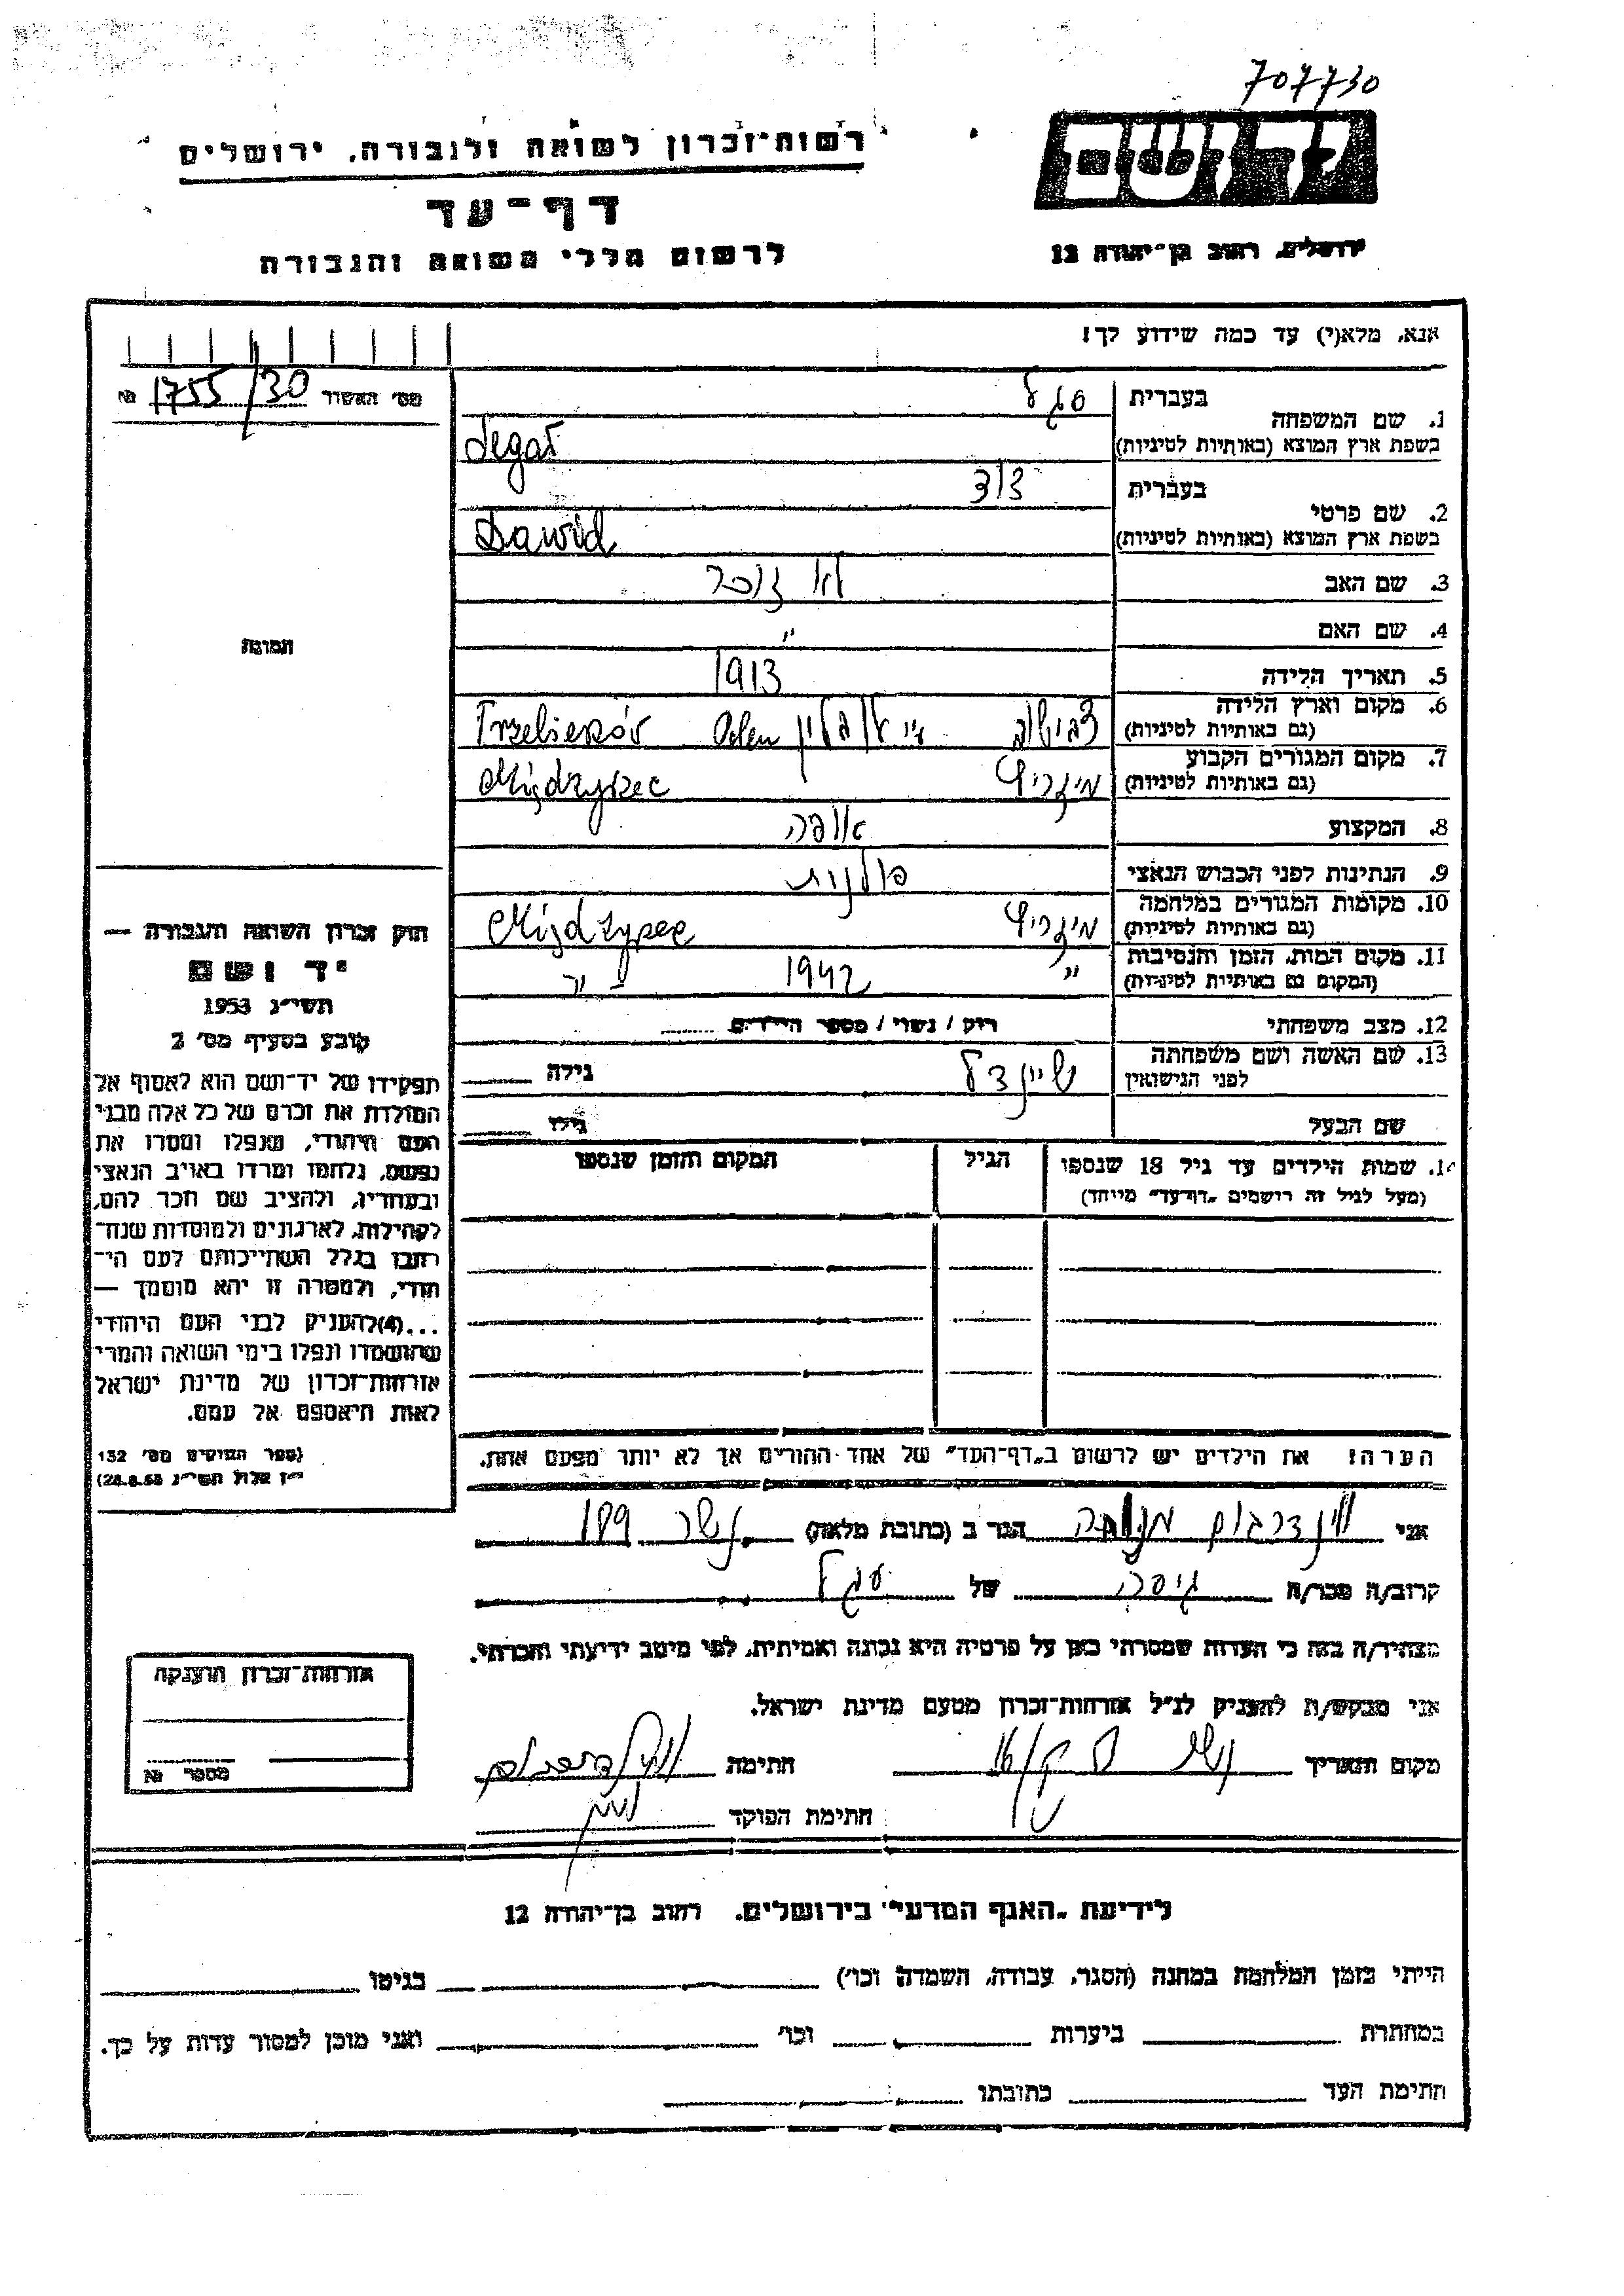 707730
רשות־זכרון לשואה ולגבורה, ירושלים
יד ושם
דף־עד
לרשום חללי השואה והגבורה
ירושלים, רחוב בן־יהודה 12
אנא, מלא(י) עד כמה שידוע לך!
מס׳ האשור 1755/30 №
1. שם המשפחה
בעברית סגל
בשפת ארץ המוצא (באותיות לטיניות) Segał
2. שם פרטי
בעברית דוד
בשפת ארץ המוצא (באותיות לטיניות) Dawid
3. שם האב לא זוכר
4. שם האם "
5. תאריך הלידה 1913
6. מקום וארץ הלידה
(גם באותיות לטיניות) Trzebieszów
7. מקום המגורים הקבוע מיזריץ
(גם באותיות לטיניות) Międzyrzec
8. המקצוע אופה
9. הנתינות לפני הכבוש הנאצי פולנית
10. מקומות המגורים במלחמה מיזריץ
(גם באותיות לטיניות) Międzyrzec
11. מקום המות, הזמן והנסיבות " 1942
(המקום גם באותיות לטיניות)
12. מצב משפחתי רוק / נשוי / מספר הילדים
13. שם האשה ושם משפחתה
לפני הנישואין שיינדל גילה
שם הבעל גילו
14. שמות הילדים עד גיל 18 שנספו הגיל המקום והזמן שנספו
(מעל לגיל זה רושמים „דף־עד” מייוחד)
הערה: את הילדים יש לרשום ב„דף־העד” של אחד ההורים אך לא יותר מפעם אחת.
תמונה
חוק זכרון השואה והגבורה —
יד ושם
תשי״ג 1953
קובע בסעיף מס׳ 2
תפקידו של יד־ושם הוא לאסוף אל
המולדת את זכרם של כל אלה מבני
העם היהודי, שנפלו ומסרו את
נפשם, נלחמו ומרדו באויב הנאצי
ובעוזריו, ולהציב שם וזכר להם,
לקהילות, לארגונים ולמוסדות שנח־
רחבו בגלל השתייכותם לעם הי־
הודי, ולמטרה זו יהא מוסמך —
...(4)להעניק לבני העם היהודי
שהושמדו ונפלו בימי השואה והמרי
אזרחות־זכרון של מדינת ישראל
לאות היאספם אל עמם.
(ספר החוקים מס׳ 132
י״ז אלול תשי״ג 28.8.53)
אני וינדרבוים מנוחה הגר ב (כתובת מלאה) נשר 199
קרוב/ה מכר/ה גיסה של סגל
מצהיר/ה בזה כי העדות שמסרתי כאן על פרטיה היא נכונה ואמיתית, לפי מיטב ידיעתי והכרתי.
אני מבקש/ת להעניק לנ״ל אזרחות־זכרון מטעם מדינת ישראל.
מקום ותאריך נשר חתימה
חתימת הפוקד
אזרחות־זכרון הוענקה
מספר №
לידיעת „האגף המדעי” בירושלים, רחוב בן־יהודה 12
הייתי בזמן המלחמה במחנה (הסגר, עבודה, השמדה וכו׳) בגיטו
במחתרת ביערות וכו׳ ואני מוכן למסור עדות על כך.
חתימת העד כתובתו